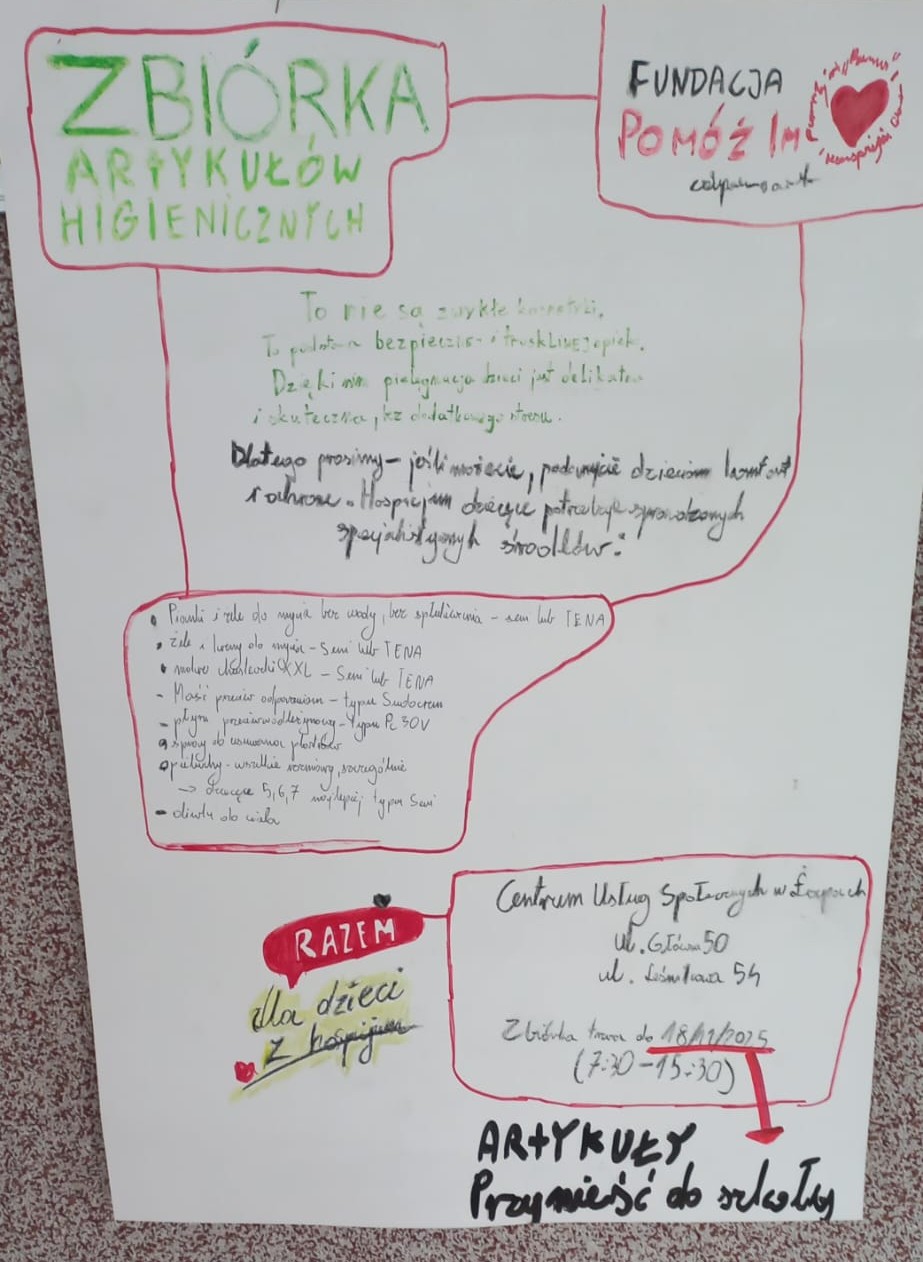 ZBIÓRKA
ARTYKUŁÓW
HIGIENICZNYCH
FUNDACJA
POMÓŻ IM
To nie są zwykłe kosmetyki.
To podstawa bezpieczne i troskliwej opieki.
Dzięki nim pielęgnacja dzieci jest delikatna
i skuteczna, bez dodatkowego stresu.
Dlatego prosimy - jeśli możecie, podarujcie dzieciom komfort
i ochronę. Hospicjum dziecięce potrzebuje sprawdzonych
specjalistycznych środków:
• Pianki i żele do mycia bez wody, bez spłukiwania - seni lub TENA
• żele i kremy do mycia - Seni lub TENA
• mokre chusteczki XXL - Seni lub TENA
- Maść przeciw odparzeniom - typu Sudocrem
- płyn przeciwodleżynowy - typu PC 30V
• spray do usuwania plastrów
• pieluchy - wszelkie rozmiary, szczególnie
→ dziecięce 5,6,7 najlepiej typu Seni
- oliwki do ciała
RAZEM
dla dzieci
z hospicjum
Centrum Usług Społecznych w Łapach
ul. Główna 50
ul. Leśnikowa 54
Zbiórka trwa do 18/11/2025
(7:30-15:30)
ARTYKUŁY
Przynieść do szkoły